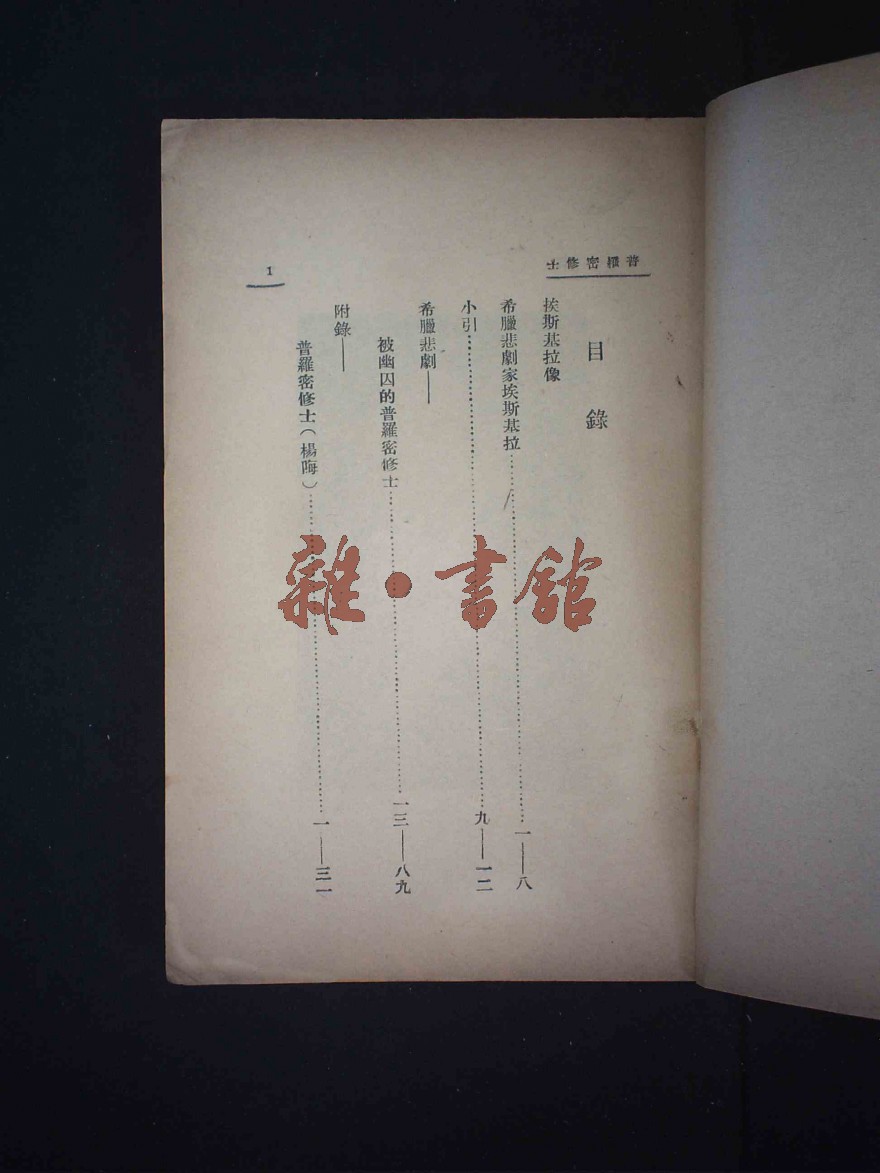 普羅密修士
1
目錄
埃斯基拉像
希臘悲劇家埃斯基拉……一——八
小引……九——一二
希臘悲劇——
被幽囚的普羅密修士……一三——八九
附錄——
普羅密修士(楊晦)……一——三一
雜·書館